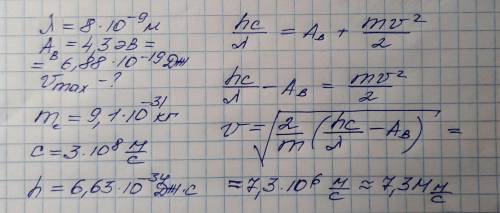 λ = 8·10⁻⁹ м
Aв = 4,3 эВ =
= 6,88·10⁻¹⁹ Дж
Vmax - ?
mₑ = 9,1·10⁻³¹ кг
c = 3·10⁸ м/с
h = 6,63·10⁻³⁴ Дж·с
hc/λ = Aв + mv²/2
hc/λ - Aв = mv²/2
v = √(2/m (hc/λ - Aв)) =
= 7,3·10⁶ м/с ≈ 7,3 Мм/с